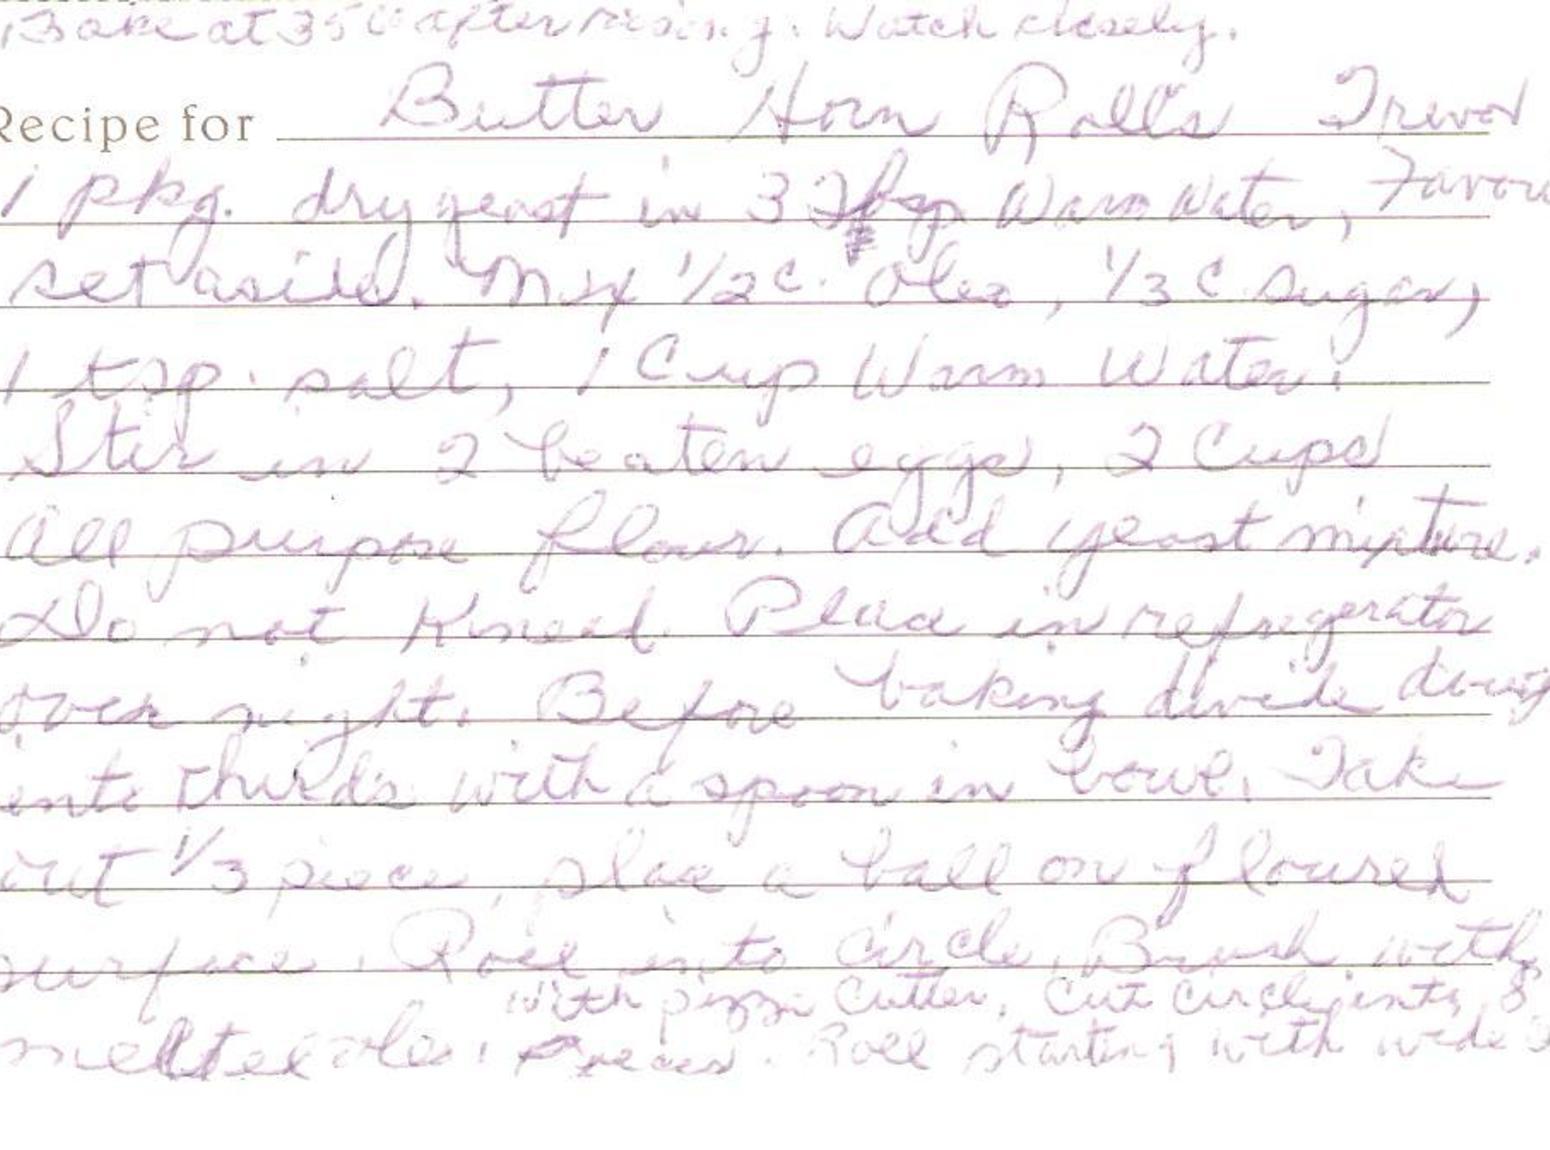 Bake at 350 after rising. Watch closely.
Recipe for Butter Horn Rolls Trevor
1 pkg. dry yeast in 3 Tbsp Warm Water, Favou
set aside. Mix 1/2 c. Oleo, 1/3 C sugar,
1 tsp. salt, 1 Cup Warm Water.
Stir in 2 beaten eggs, 2 Cups
All purpose flour. Add yeast mixture.
Do not Knead. Place in refrigerator
over night. Before baking divide doug
into thirds with a spoon in bowl. Take
out 1/3 piece, place a ball on floured
surface. Roll into circle. Brush with
with pizza Cutter, Cut Circle into 8
melted oleo. Pieces. Roll starting with wide